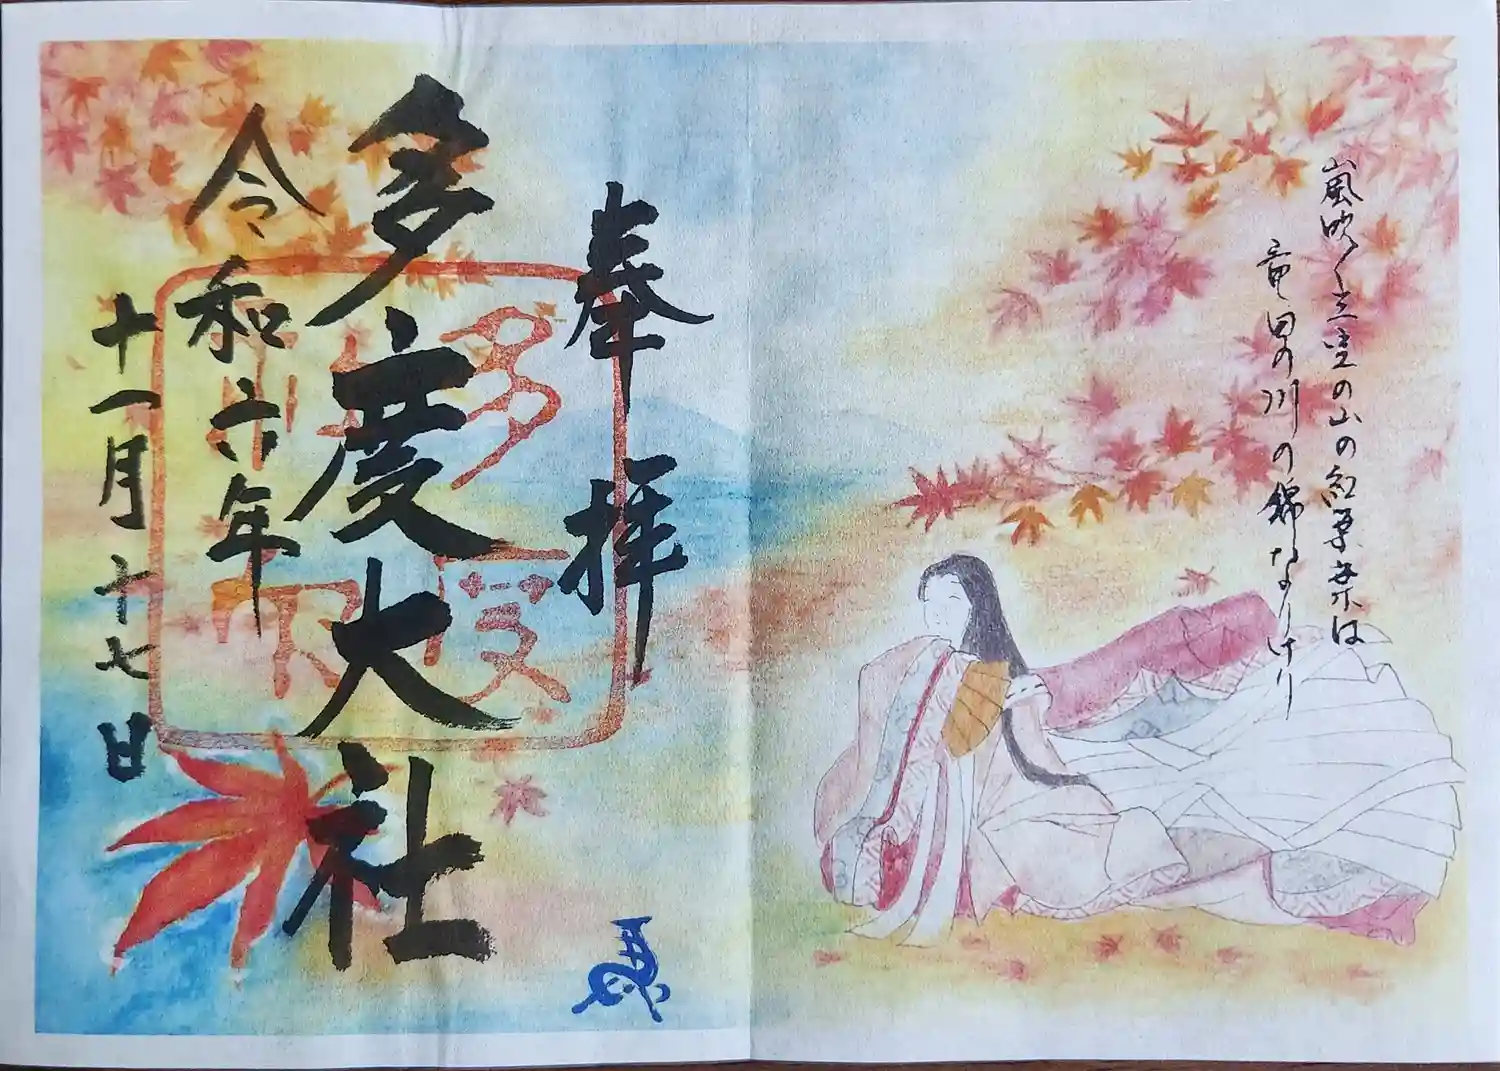 嵐吹く立空の山の紅葉葉は
竜田の川の錦なりけり
奉拝
多度大社
令和六年
十一月十七日
馬